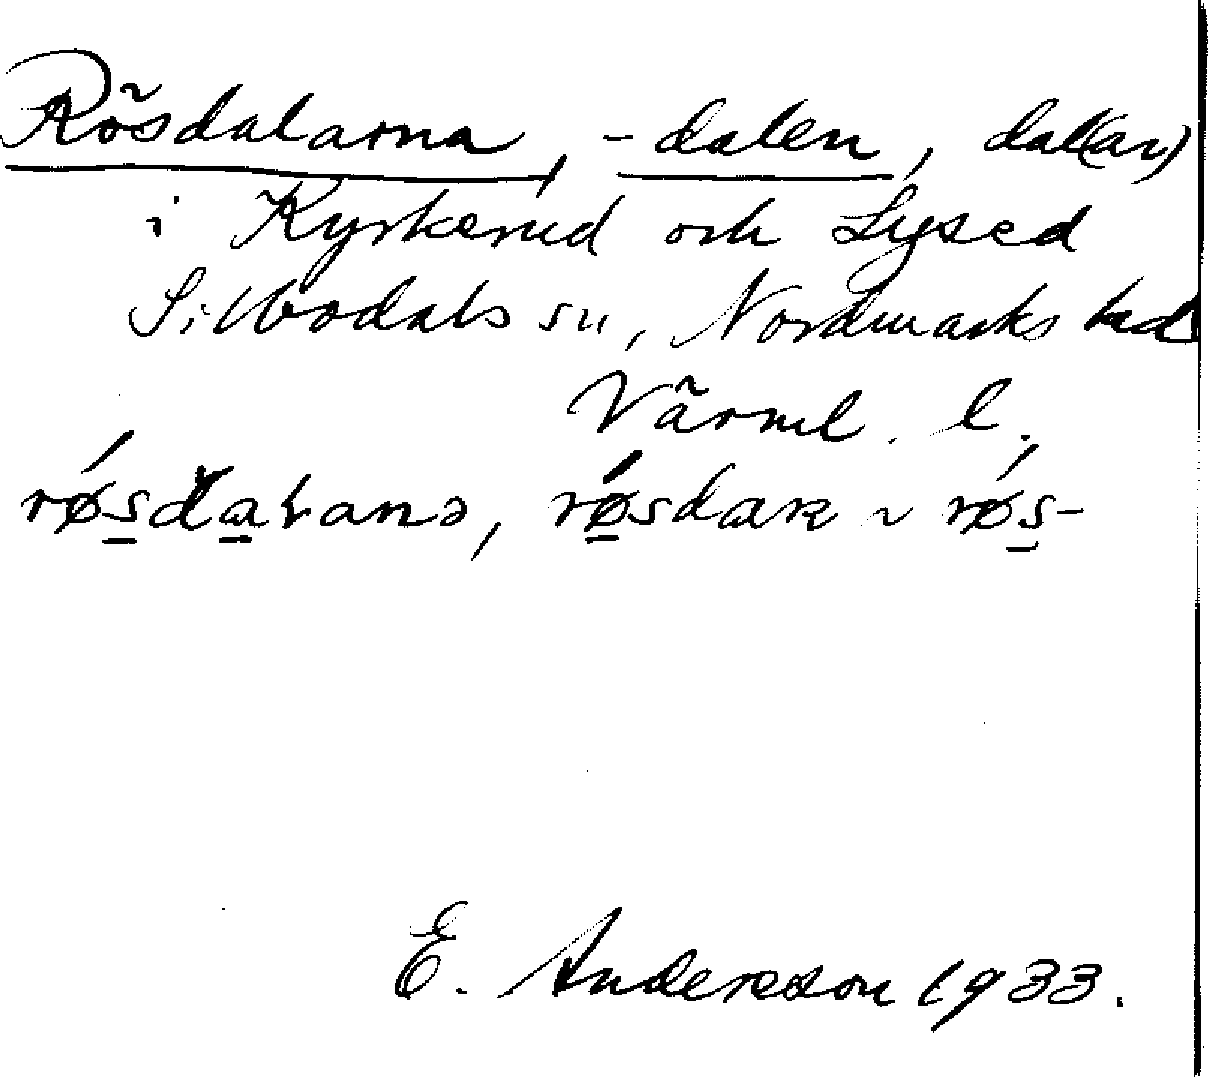 Rösdalarna, -dalen, dal(ar)
i Kyrkerud och Lysed
Silbodals sn, Nordmarks hd
Värml. l.
røsdaɫanə, røsdaɴ ~ røs-
E. Andersson 1933.